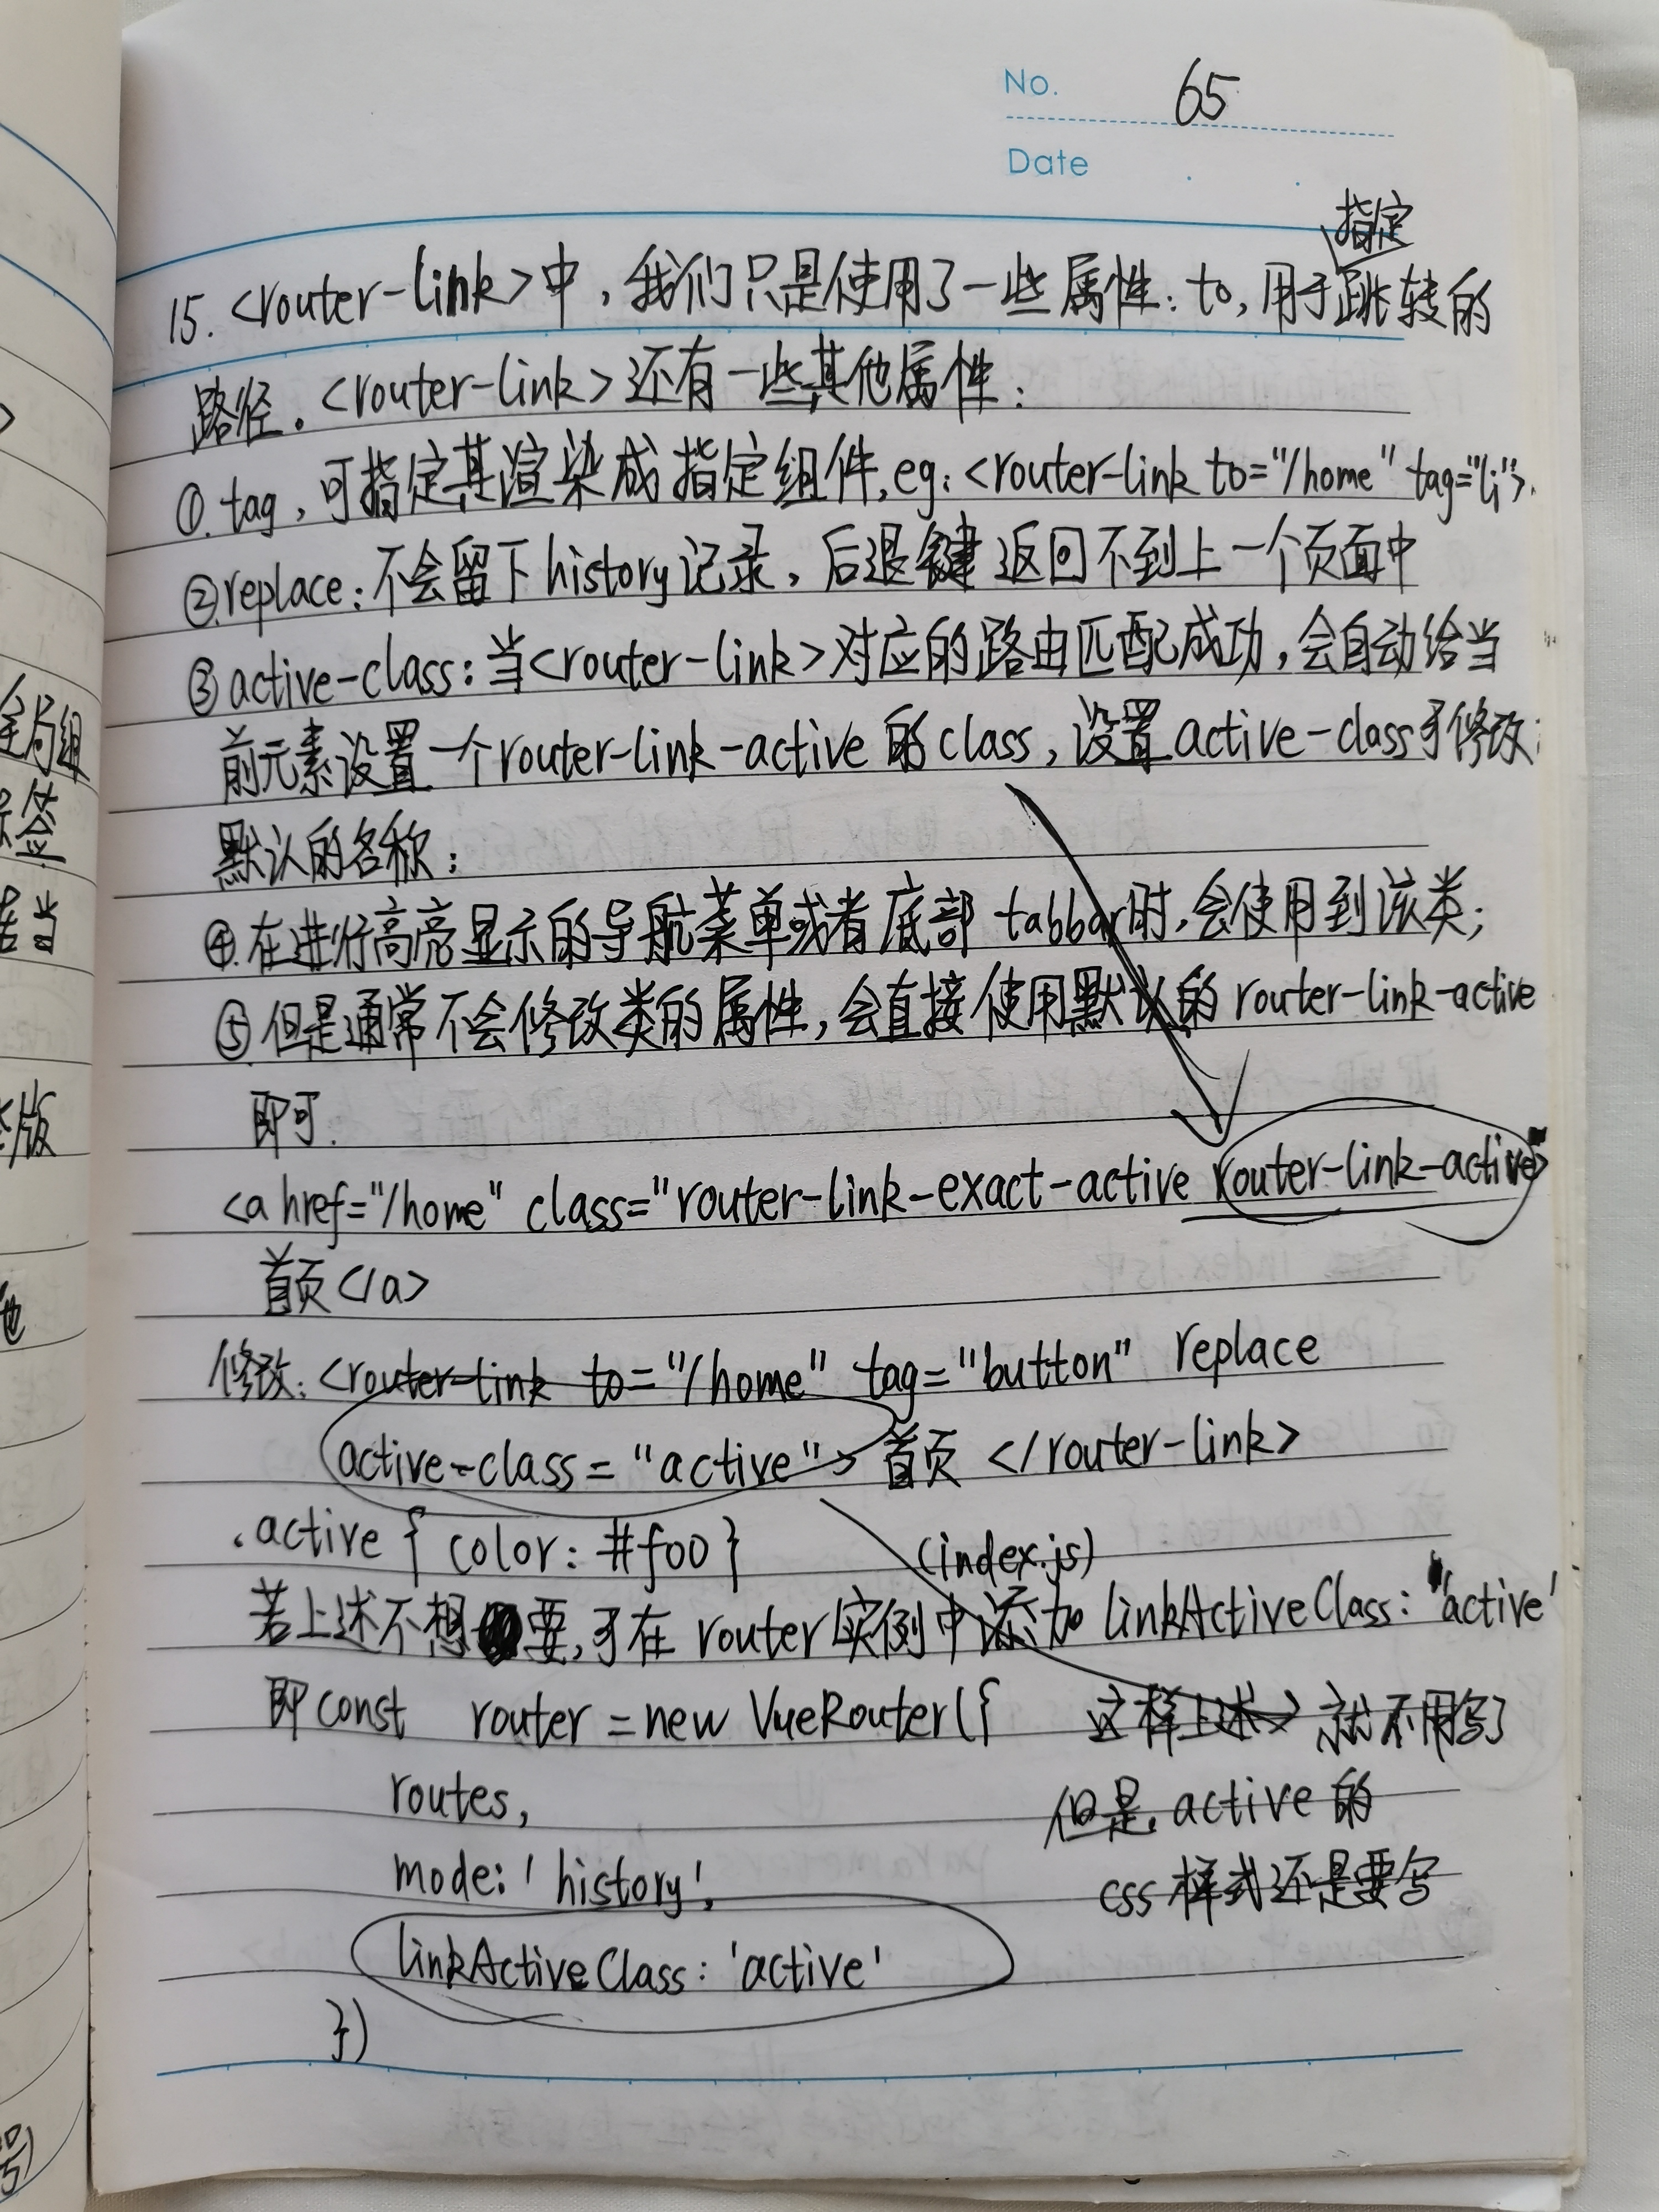 No. 65
Date
指定
15. <router-link>中,我们只是使用了一些属性:to,用于跳转的
路径。<router-link>还有一些其他属性:
①.tag,可指定其渲染成指定组件,eg:<router-link to="/home" tag="li">.
②replace:不会留下history记录,后退键返回不到上一个页面中
③active-class:当<router-link>对应的路由匹配成功,会自动给当
前元素设置一个router-link-active的class,设置active-class可修改
默认的名称;
④.在进行高亮显示的导航菜单或者底部 tabbar时,会使用到该类;
⑤但是通常不会修改类的属性,会直接使用默认的router-link-active
即可.
<a href="/home" class="router-link-exact-active router-link-active">
首页</a>
修改:<router-link to="/home" tag="button" replace
active-class="active">首页</router-link>
.active { color: #f00 }
(index.js)
若上述不想要,可在router实例中添加 linkActiveClass: 'active'
即const router = new VueRouter({ 这样上述→就不用写了
routes, 但是.active的
mode: 'history', css样式还是要写
linkActiveClass: 'active'
})
全局组
标签
居当
版
他
号)